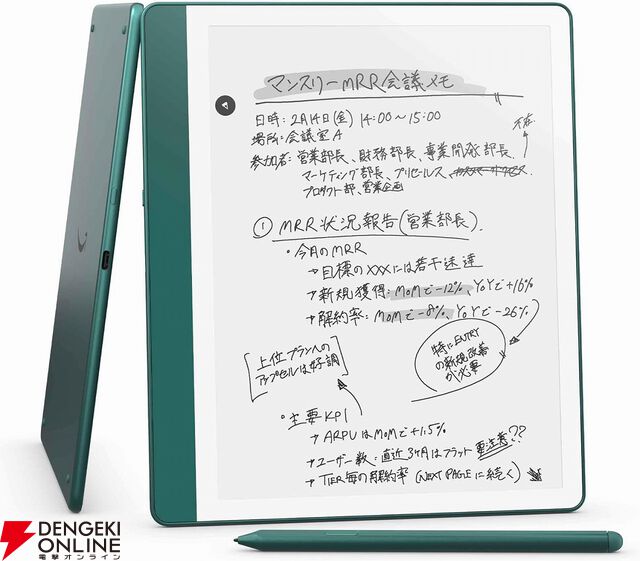 マンスリーMRR会議メモ
日時：2月14日(金) 14:00〜15:00
場所：会議室A
不在
参加者：営業部長、財務部長、事業開発部長、
マーケティング部長、プリセールス、
プロダクト部、営業企画
① MRR状況報告(営業部長)
・今月のMRR
→目標のXXXには若干未達
→新規獲得：MoMで-12%、YoYで+16%
→解約率：MoMで-8%、YoYで-26%
特にENTRY
の新規改善
が必要
[上位プランへの
アップセルは好調]
・主要KPI
→ARPUはMoMで+1.5%
→ユーザー数：直近3ヶ月はフラット 要注意??
→TIER毎の解約率 (NEXT PAGEに続く)
DENGEKI
ONLINE
電撃オンライン